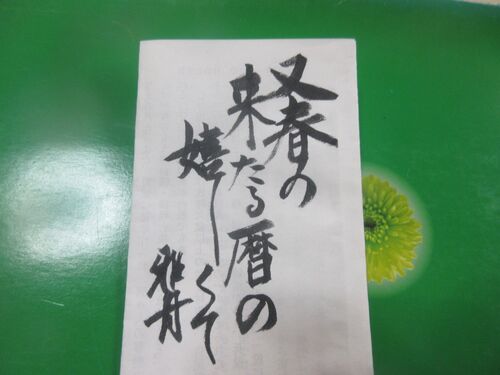 又春の
来たる暦の
嬉しくて
雅丹